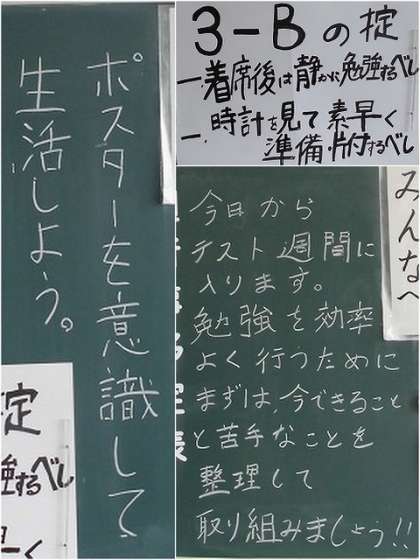 ポスターを意識して
生活しよう。
掟
強するべし
早く
3-Bの掟
一、着席後は静かに勉強するべし
一、時計を見て素早く
準備・片付するべし
みんなへ
今日から
テスト週間に
入ります。
勉強を効率
よく行うために
まずは、今できること
と苦手なことを
整理して
取り組みましょう!!